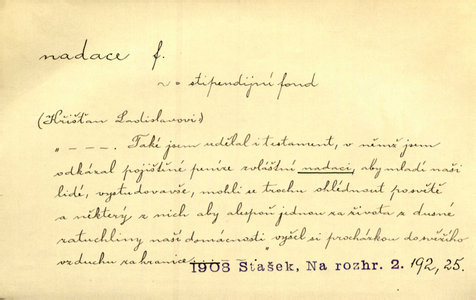 nadace f.
~ ° stipendijní fond
(Křišťan Ladislavovi)
„ – – – . Také jsem udělal i testament, v němž jsem
odkázal pojištěné peníze zvláštní nadaci, aby mladí naši
lidé, vystudovavše, mohli se trochu ohlédnout po světě
a některý z nich aby alespoň jednou za života z dusné
zatuchliny naší domácnosti vyšel si procházkou do svěžího
vzduchu za hranice. – – – . "
1908 Stašek, Na rozhr. 2. 192, 25.